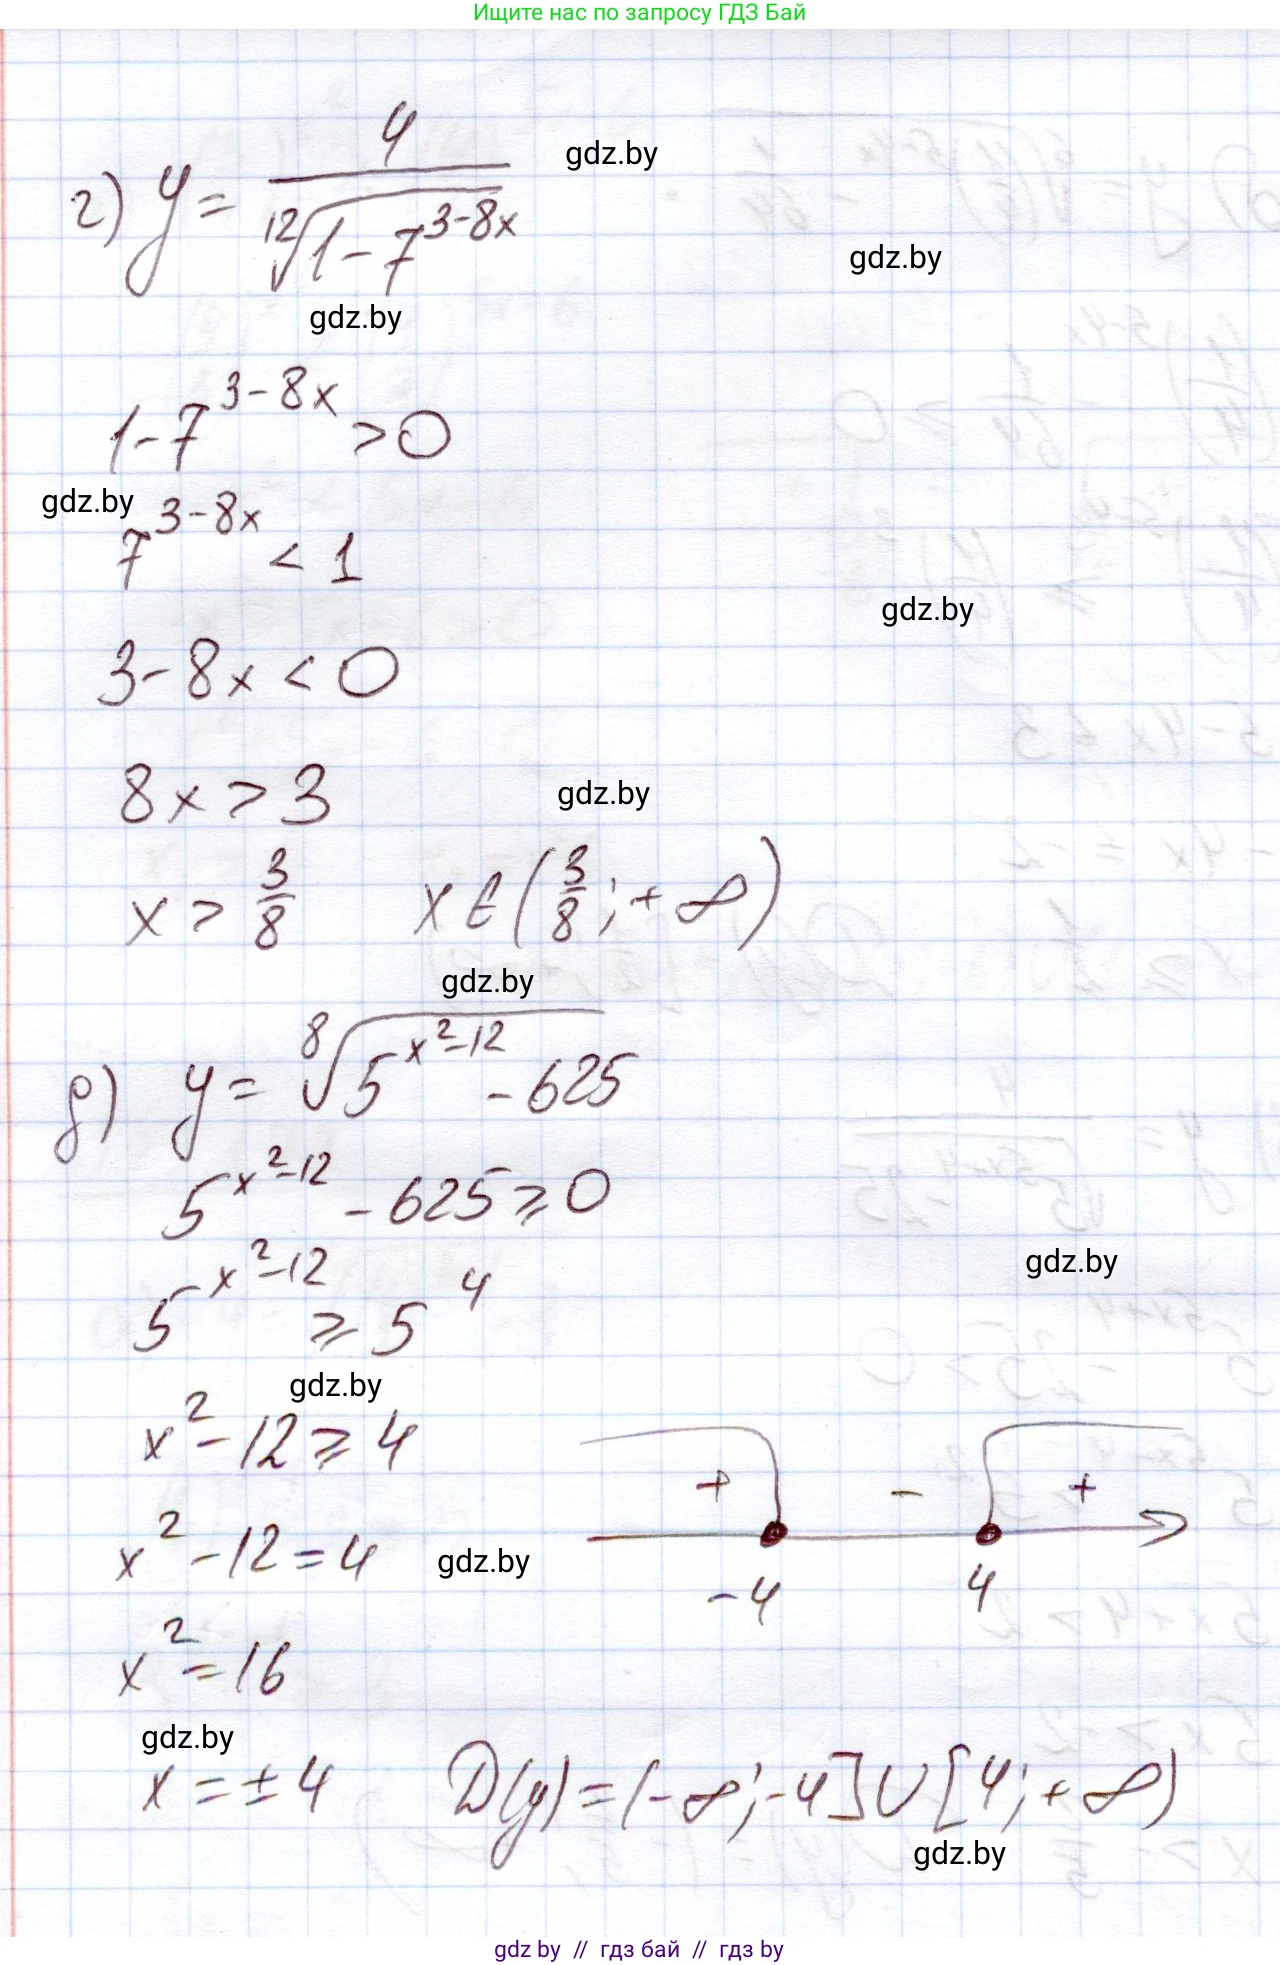 Ищите нас по запросу ГДЗ Бай
г) y = 4 / ¹²√(1 - 7^(3-8x))
gdz.by
gdz.by
gdz.by
1 - 7^(3-8x) > 0
gdz.by
7^(3-8x) < 1
gdz.by
3 - 8x < 0
8x > 3
gdz.by
x > 3/8 x ∈ (3/8; +∞)
gdz.by
д) y = ⁸√(5^(x²-12) - 625)
5^(x²-12) - 625 ≥ 0
gdz.by
5^(x²-12) ≥ 5^4
gdz.by
x² - 12 ≥ 4
+ - +
x² - 12 = 4
gdz.by
-4 4
x² = 16
gdz.by
x = ±4 D(y) = (-∞; -4] ∪ [4; +∞)
gdz.by
gdz by // гдз бай // гдз by